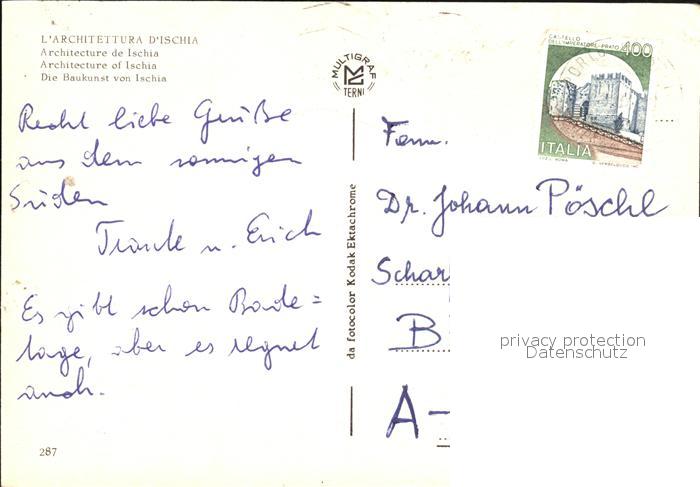 L'ARCHITETTURA D'ISCHIA
Architecture de Ischia
Architecture of Ischia
Die Baukunst von Ischia
MULTIGRAF
TERNI
CASTELLO
DELL'IMPERATORE-PRATO 400
ITALIA
Recht liebe Grüße
aus dem sonnigen
Süden
Traute u. Erich
Es gibt schon Bade=
tage, aber es regnet
auch.
287
da fotocolor Kodak Ektachrome
Fam.
Dr. Johann Pöschl
Schar
B
A-
privacy protection
Datenschutz